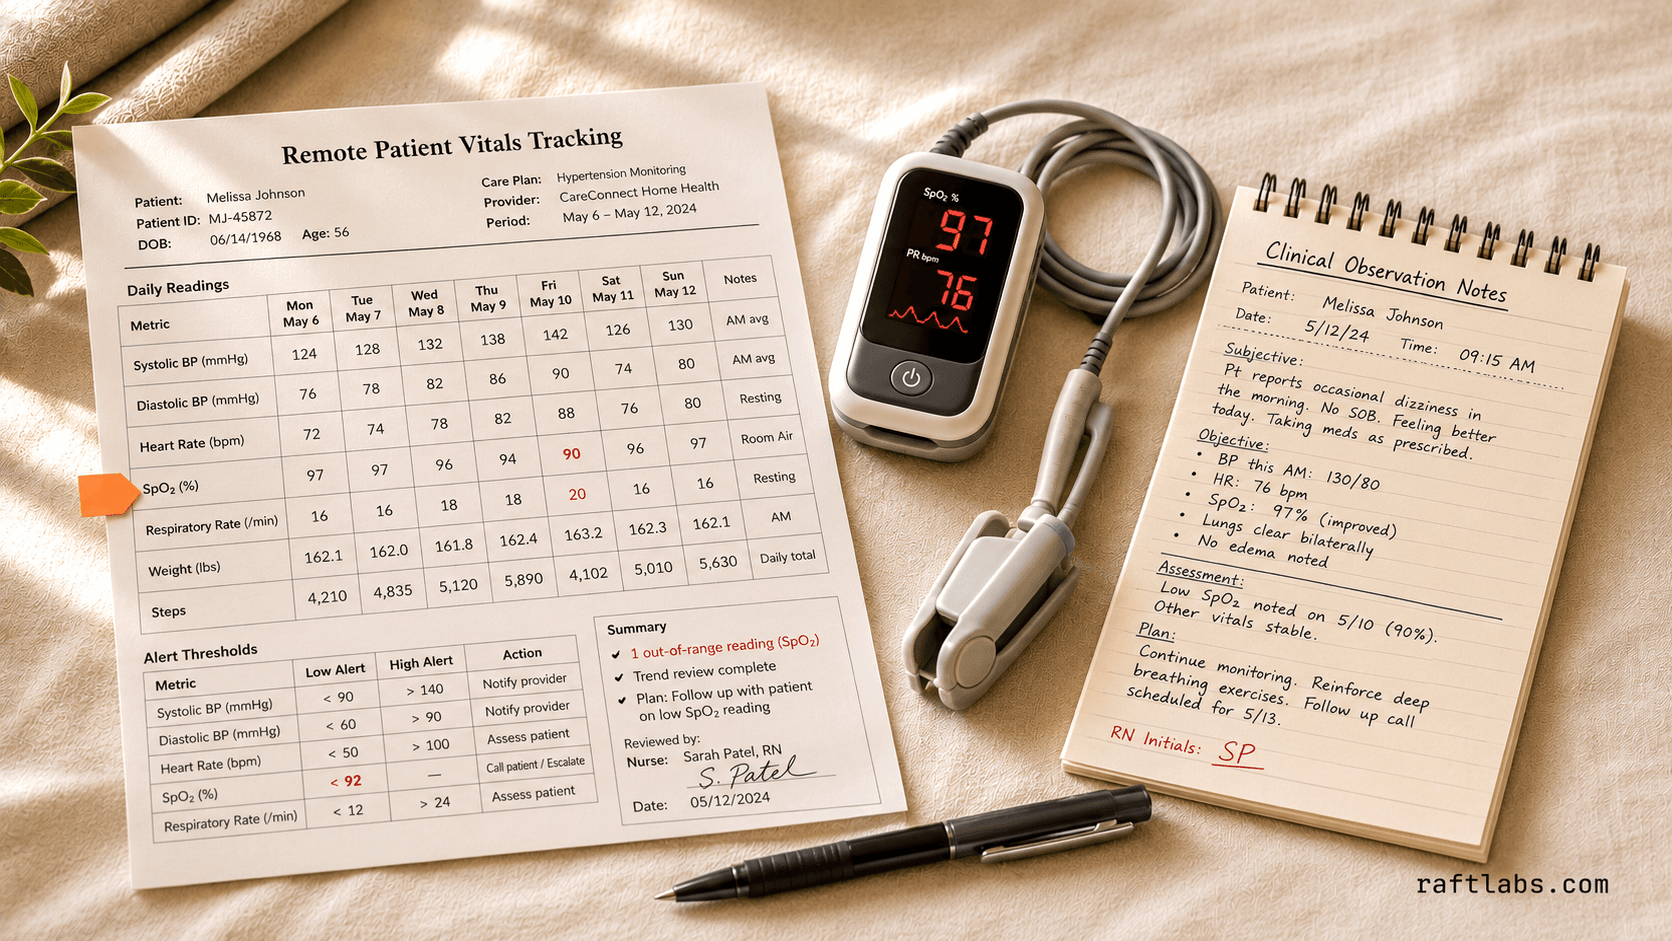 Remote Patient Vitals Tracking
Patient: Melissa Johnson
Patient ID: MJ-45872
DOB: 06/14/1968 Age: 56
Care Plan: Hypertension Monitoring
Provider: CareConnect Home Health
Period: May 6 – May 12, 2024
Daily Readings
Metric Mon May 6 Tue May 7 Wed May 8 Thu May 9 Fri May 10 Sat May 11 Sun May 12 Notes
Systolic BP (mmHg) 124 128 132 138 142 126 130 AM avg
Diastolic BP (mmHg) 76 78 82 86 90 74 80 AM avg
Heart Rate (bpm) 72 74 78 82 88 76 80 Resting
SpO₂ (%) 97 97 96 94 90 96 97 Room Air
Respiratory Rate (/min) 16 16 18 18 20 16 16 Resting
Weight (lbs) 162.1 162.0 161.8 162.4 163.2 162.3 162.1 AM
Steps 4,210 4,835 5,120 5,890 4,102 5,010 5,630 Daily total
Alert Thresholds
Metric Low Alert High Alert Action
Systolic BP (mmHg) < 90 > 140 Notify provider
Diastolic BP (mmHg) < 60 > 90 Notify provider
Heart Rate (bpm) < 50 > 100 Assess patient
SpO₂ (%) < 92 — Call patient / Escalate
Respiratory Rate (/min) < 12 > 24 Assess patient
Summary
✓ 1 out-of-range reading (SpO₂)
✓ Trend review complete
✓ Plan: Follow up with patient
on low SpO₂ reading
Reviewed by:
Nurse: Sarah Patel, RN
S. Patel
Date: 05/12/2024
SpO₂ %
97
PR bpm
76
Clinical Observation Notes
Patient: Melissa Johnson
Date: 5/12/24 Time: 09:15 AM
Subjective:
Pt reports occasional dizziness in
the morning. No SOB. Feeling better
today. Taking meds as prescribed.
Objective:
• BP this AM: 130/80
• HR: 76 bpm
• SpO₂: 97% (improved)
• Lungs clear bilaterally
• No edema noted
Assessment:
Low SpO₂ noted on 5/10 (90%).
Other vitals stable.
Plan:
Continue monitoring. Reinforce deep
breathing exercises. Follow up call
scheduled for 5/13.
RN Initials: SP
raftlabs.com